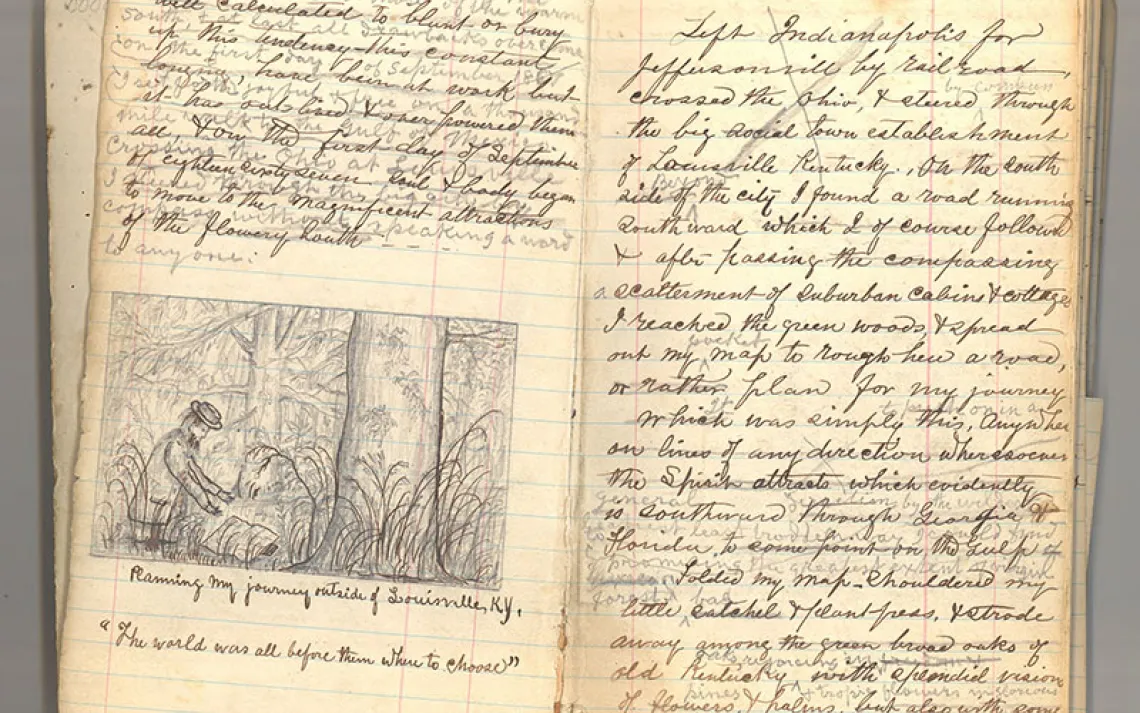 will calculated to blunt or bury
up this tendency this constant
longing, have been at work but
it has out lived & over powered them
all, & on the first day of September
of eighteen sixty seven soul & body began
to move to the magnificent attractions
of the flowery South
south & at last all drawbacks overcome
on the first day of September 1867
I set forth joyful & free on a thousand
mile walk to the Gulf of Mexico
Crossing the Ohio at Louisville
I steered through the big city by
compass without speaking a word
to any one.
Planning my journey outside of Louisville, Ky.
"The world was all before them where to choose"
Left Indianapolis for
Jeffersonvill by rail road,
crossed the Ohio, & steered through
by compass
the big social town establishment
of Louisville Kentucky. On the south
side of the city I found a road running
southward which I of course followed
& after passing the compassing
a scatterment of suburban cabins & cottages
I reached the green woods, & spread
pocket
out my map to rough hew a road,
or rather plan for my journey
Which was simply this, Anywhere
on lines of any direction wheresoever
the Spirit attracts which evidently
general
is southward through Georgia &
Florida, to some point on the gulf
Folded my map Shouldered my
forest
bag
little satchel & plant press, & strode
away among the green broad oaks of
old Kentucky with splendid vision
pines
of flowers, & palms, but also with some